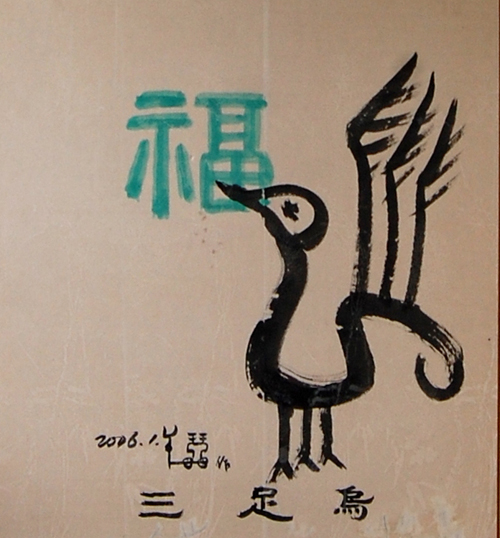 福
2006.1. 作
三足烏